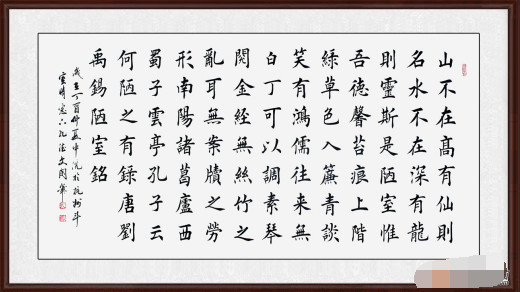 山不在高有仙則
名水不在深有龍
則靈斯是陋室惟
吾德馨苔痕上階
綠草色入簾青談
笑有鴻儒往來無
白丁可以調素琴
閱金經無絲竹之
亂耳無案牘之勞
形南陽諸葛廬西
蜀子雲亭孔子云
何陋之有錄唐劉
禹錫陋室銘
丁酉仲夏中浣於杭州斗
室時